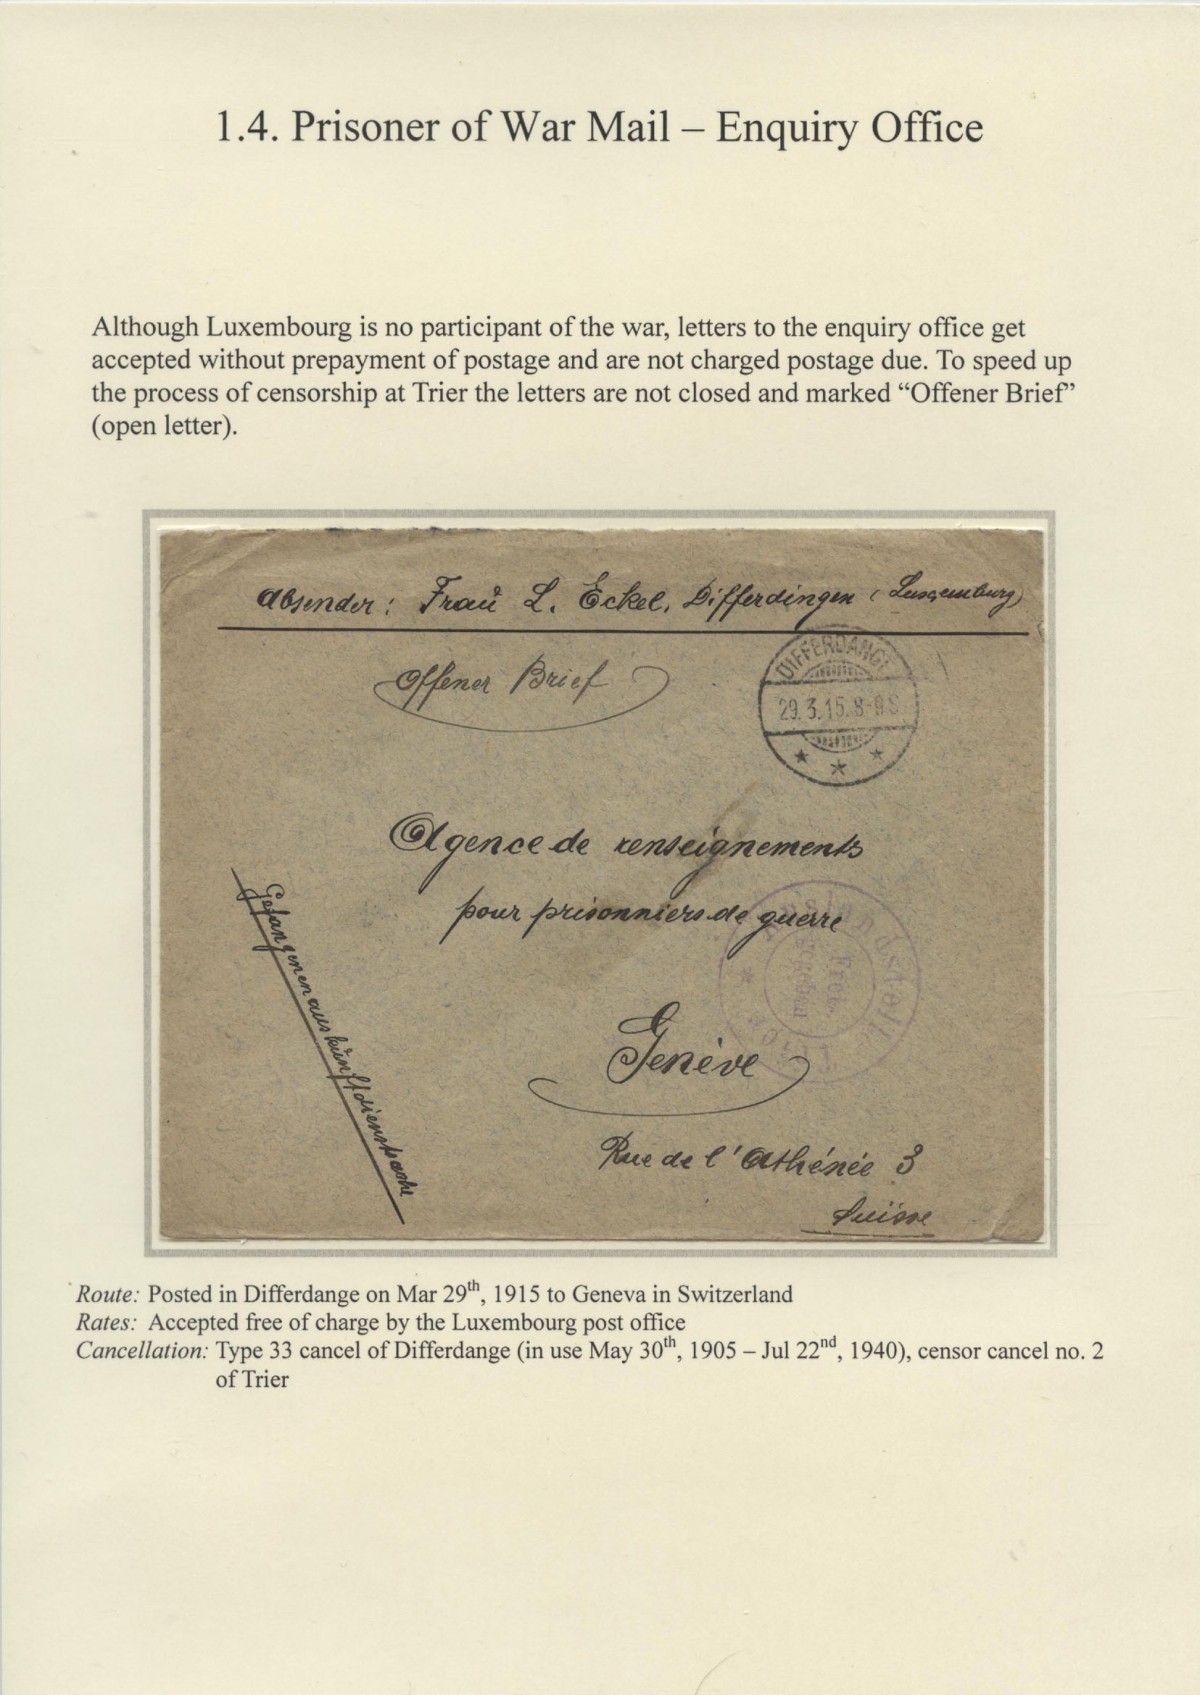 1.4. Prisoner of War Mail – Enquiry Office
Although Luxembourg is no participant of the war, letters to the enquiry office get
accepted without prepayment of postage and are not charged postage due. To speed up
the process of censorship at Trier the letters are not closed and marked “Offener Brief”
(open letter).
Absender: Frau L. Eckel, Differdingen (Luxemburg)
Offener Brief
DIFFERDANGE
29.3.15.8-9S
Agence de renseignements
pour prisonniers de guerre
Auslandstelle
Frei-
gegeben
Genève
Gefangenenauskunftdienstsache
Rue de l'Athénée 3
Suisse
Route: Posted in Differdange on Mar 29th, 1915 to Geneva in Switzerland
Rates: Accepted free of charge by the Luxembourg post office
Cancellation: Type 33 cancel of Differdange (in use May 30th, 1905 – Jul 22nd, 1940), censor cancel no. 2
of Trier